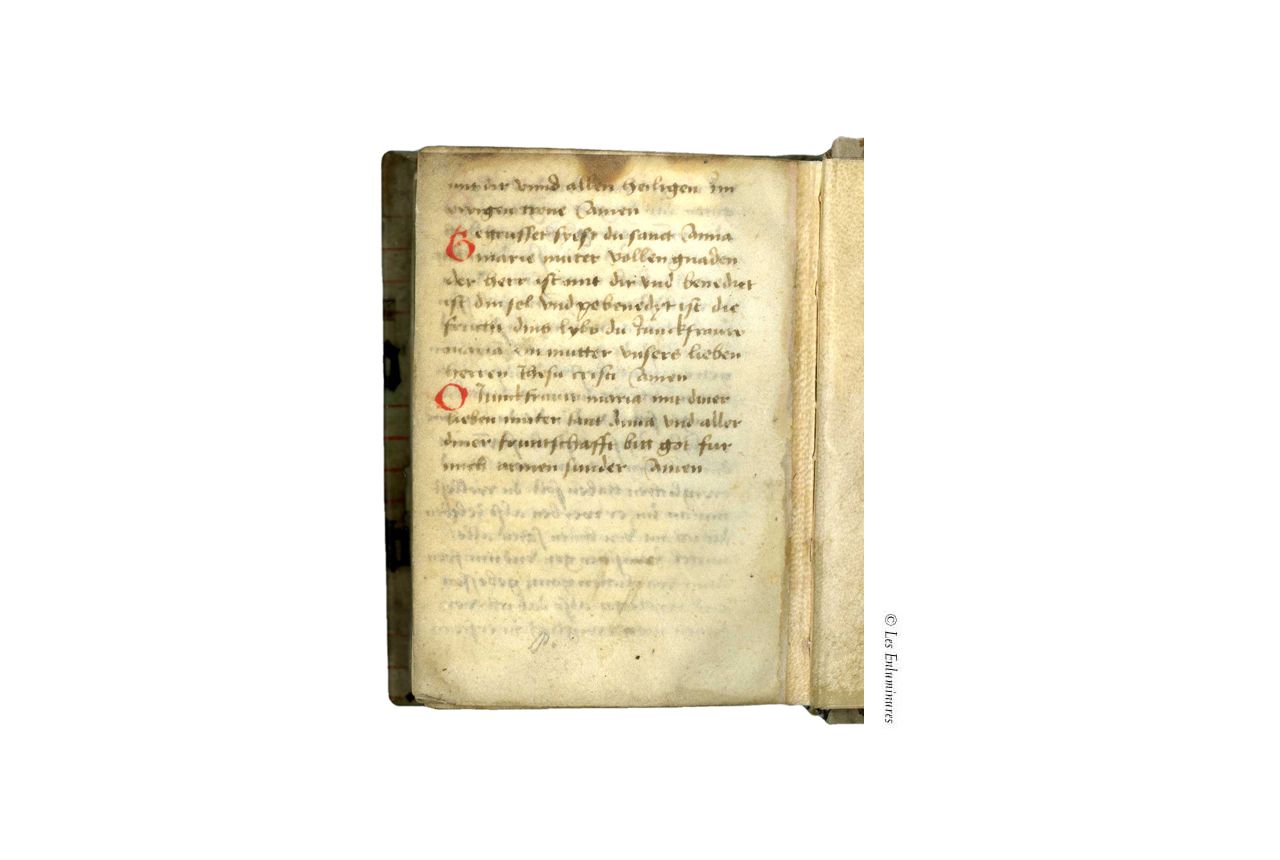 mit dir vnnd allen heiligen im
ewigen trone Amen
Gegrusset syest du sanct Anna
marie muter vollen gnaden
der herr ist mit dir vnd benedict
ist din sel vnd gebenedyt ist die
frucht dins lybs du Junckfrauw
maria ein mutter vnsers lieben
herren Jhesu cristi Amen
O Junckfrauw maria mit diner
lieben muter sant Anna vnd aller
diner fruntschafft bitt got fur
mich armen sunder Amen
© Les Enluminures